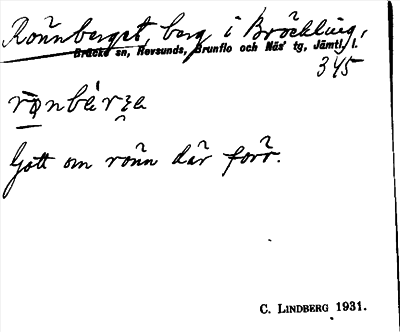 Rönnberget, berg i Bräckling,
Bräcke sn, Revsunds, Brunflo och Näs' tg, Jämtl. l.
345
Gott om rönn där förr.
C. LINDBERG 1931.